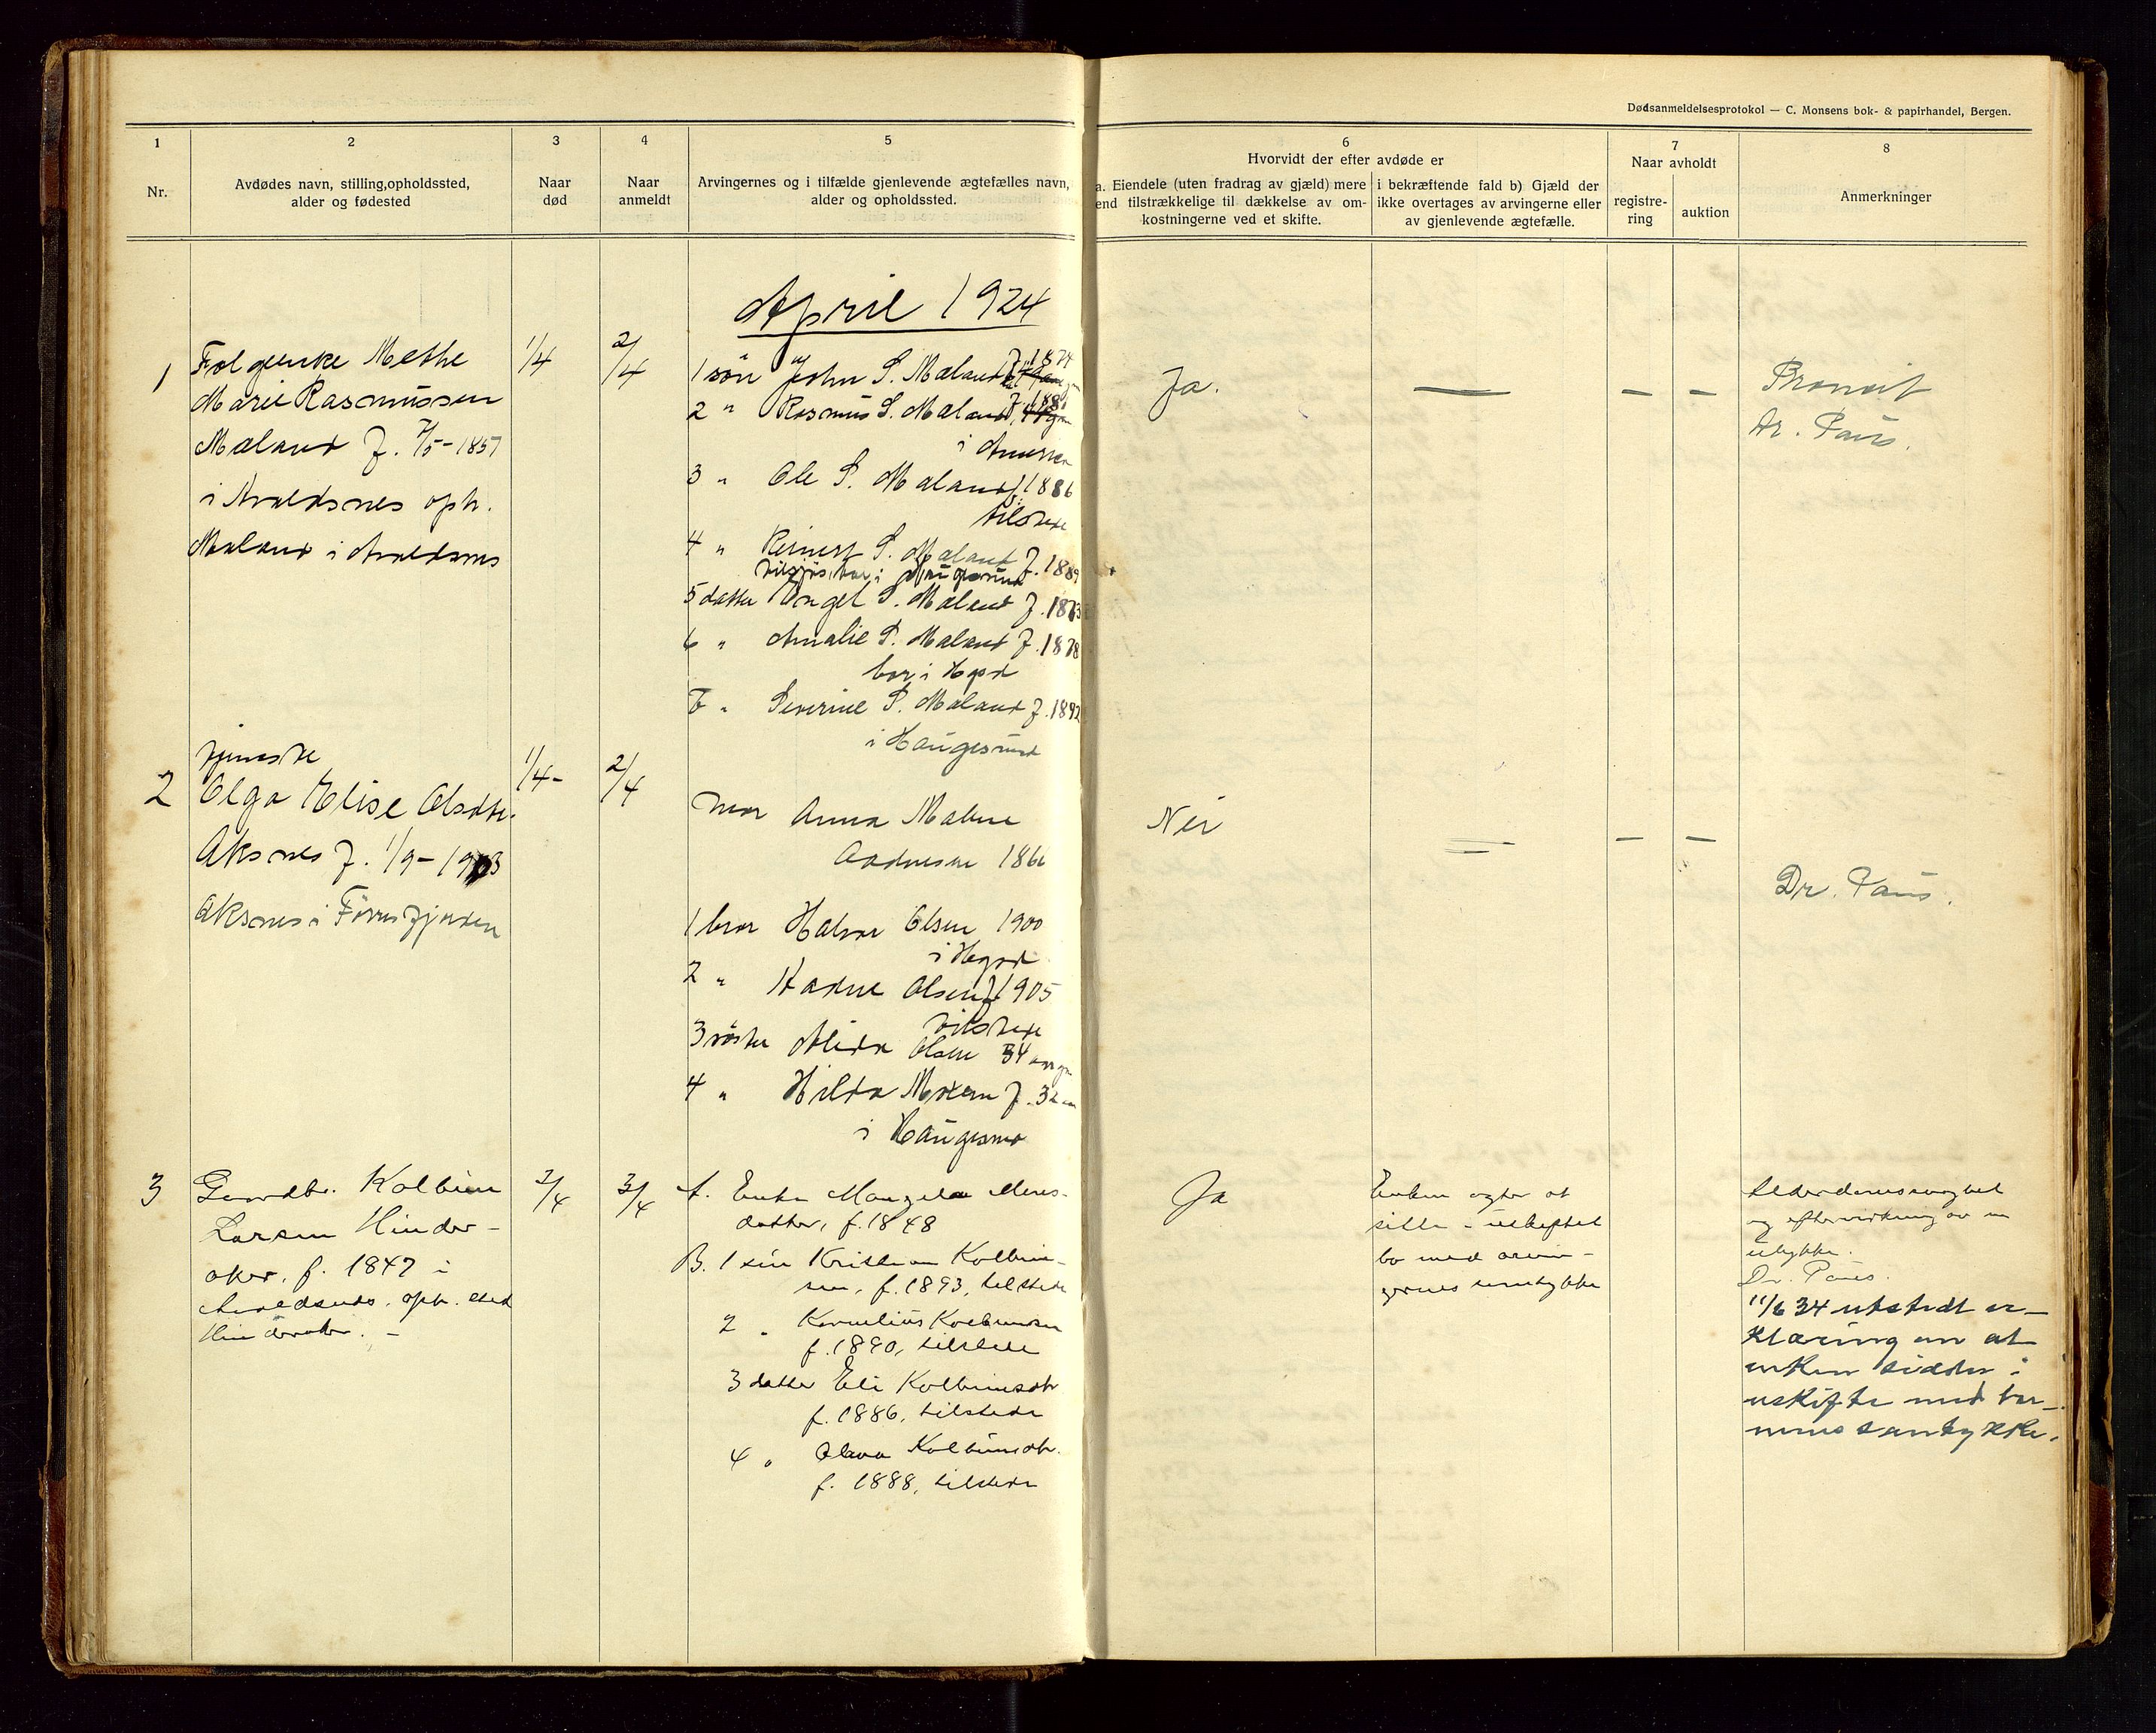 Dødsanmeldelsesprotokol — C. Monsens bok- & papirhandel, Bergen.
1
Nr.
2
Avdødes navn, stilling, opholdssted,
alder og fødested
3
Naar
død
4
Naar
anmeldt
5
Arvingernes og i tilfælde gjenlevende ægtefælles navn,
alder og opholdssted.
6
Hvorvidt der efter avdøde er
a. Eiendele (uten fradrag av gjæld) mere
end tilstrækkelige til dækkelse av om-
kostningerne ved et skifte.
i bekræftende fald b) Gjæld der
ikke overtages av arvingerne eller
av gjenlevende ægtefælle.
7
Naar avholdt
registre-
ring
auktion
8
Anmerkninger
April 1924
1
Folgeenke Methe
Marie Rasmussen
Maland f. 7/5-1857
i Avaldsnes oph.
Maland i Avaldsnes
1/4
2/4
1 søn John S. Maland f. 1874
2 " Rasmus S. Maland
i Amerika
3 " Ole S. Maland f. 1886
tilstede
4 " Reinert S. Maland f. 1889
bor i Haugesund
5 datter Engel S. Maland f. 1873
6 " Amalie S. Maland f. 1878
bor i Hgsd
7 " Severine S. Maland f. 1892
i Haugesund
Ja.
—
— —
Dr. Paus.
2
tjeneste
Olga Elise Olsdtr.
Aksnes f. 1/9-1903
Aksnes i Førresfjorden
1/4-
2/4
mor Anna Malene
1866
1 bror Halvor Olsen 1900
i Hgsd
2 " Olsen f 1905
tilstede
3 søster Alida Olsen 34 aar gl
4 " Hilda f. 32
i Haugesund
Nei
— —
Dr. Paus.
3
Gaardbr. Kolbein
Larsen Hinder-
aker, f. 1847 i
Avaldsnes, oph. sted
Hinderaker. -
2/4
3/4
A. Enke
datter, f. 1848
B. 1 søn Kristian Kolbein-
sen, f. 1893, tilstede
2 " Kornelius Kolbeinsen
f. 1890, tilstede
3 datter Eli Kolbeinsdtr
f. 1886, tilstede
4 " Olava Kolbeinsdtr.
f. 1888, tilstede
Ja
Enken agter at
sitte i uskiftet
bo med arvin-
gernes samtykke
Alderdomssvaghet
og eftervirkning av en
ulykke.
Dr. Paus.
11/6 34 utstedt er-
klæring om at
enken sidder i
uskifte med bar-
nenes samtykke.